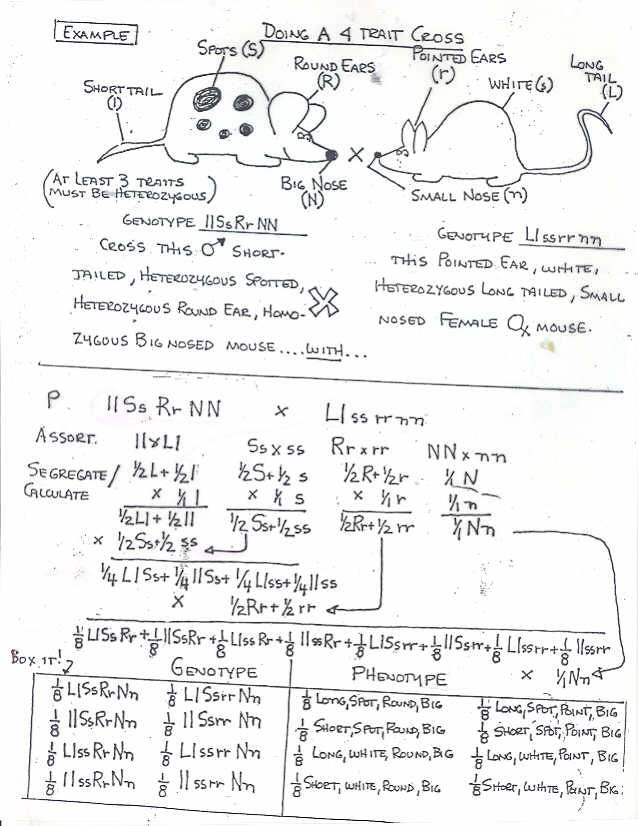 EXAMPLE
DOING A 4 TRAIT CROSS
SPOTS (S)
ROUND EARS
(R)
POINTED EARS
(r)
WHITE (s)
LONG
TAIL
(L)
SHORT TAIL
(l)
(AT LEAST 3 TRAITS
MUST BE HETEROZYGOUS)
BIG NOSE
(N)
×
SMALL NOSE (n)
GENOTYPE llSsRrNN
CROSS THIS ♂ SHORT-
TAILED, HETEROZYGOUS SPOTTED,
HETEROZYGOUS ROUND EAR, HOMO-
ZYGOUS BIG NOSED MOUSE .... WITH ...
X
GENOTYPE Llssrrnn
THIS POINTED EAR, WHITE,
HETEROZYGOUS LONG TAILED, SMALL
NOSED FEMALE ♀ MOUSE.
P llSsRrNN × Llssrrnn
ASSORT. ll×Ll Ss×ss Rr×rr NN×nn
SEGREGATE/ ½L+½l ½S+½s ½R+½r 1/1 N
CALCULATE × 1/1 l × 1/1 s × 1/1 r 1/1 n
½Ll+½ll ½Ss+½ss ½Rr+½rr 1/1 Nn
× ½Ss+½ss
¼LlSs+¼llSs+¼Llss+¼llss
× ½Rr+½rr
⅛LlSsRr+⅛llSsRr+⅛LlssRr+⅛llssRr+⅛LlSsrr+⅛llSsrr+⅛Llssrr+⅛llssrr
× 1/1 Nn
BOX IT!
GENOTYPE PHENOTYPE
⅛ LlSsRrNn ⅛ LlSsrrNn ⅛ LONG, SPOT, ROUND, BIG ⅛ LONG, SPOT, POINT, BIG
⅛ llSsRrNn ⅛ llSsrrNn ⅛ SHORT, SPOT, ROUND, BIG ⅛ SHORT, SPOT, POINT, BIG
⅛ LlssRrNn ⅛ LlssrrNn ⅛ LONG, WHITE, ROUND, BIG ⅛ LONG, WHITE, POINT, BIG
⅛ llssRrNn ⅛ llssrrNn ⅛ SHORT, WHITE, ROUND, BIG ⅛ SHORT, WHITE, POINT, BIG